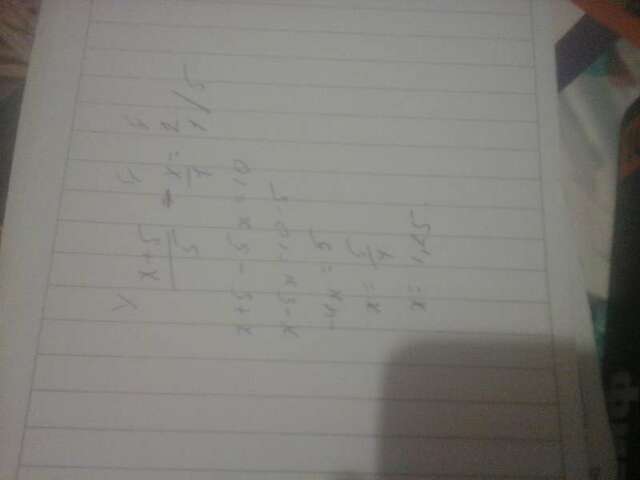 1 5 5
x+5/5 - x/1 = 2/1 /5
x+5-5x=10
x-5x=10-5
-4x=5
x= 5/4
x= 1,25